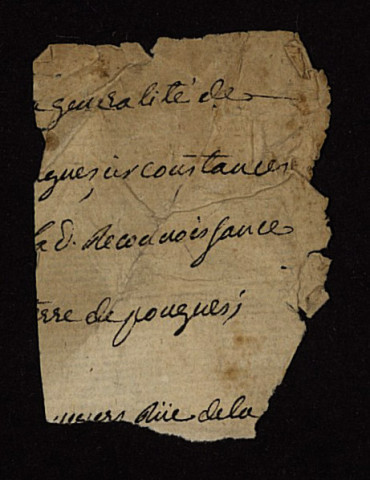 generalité de
gues, circonstances
lad. Reconnoissance
terre de pougues;
Rüe de la